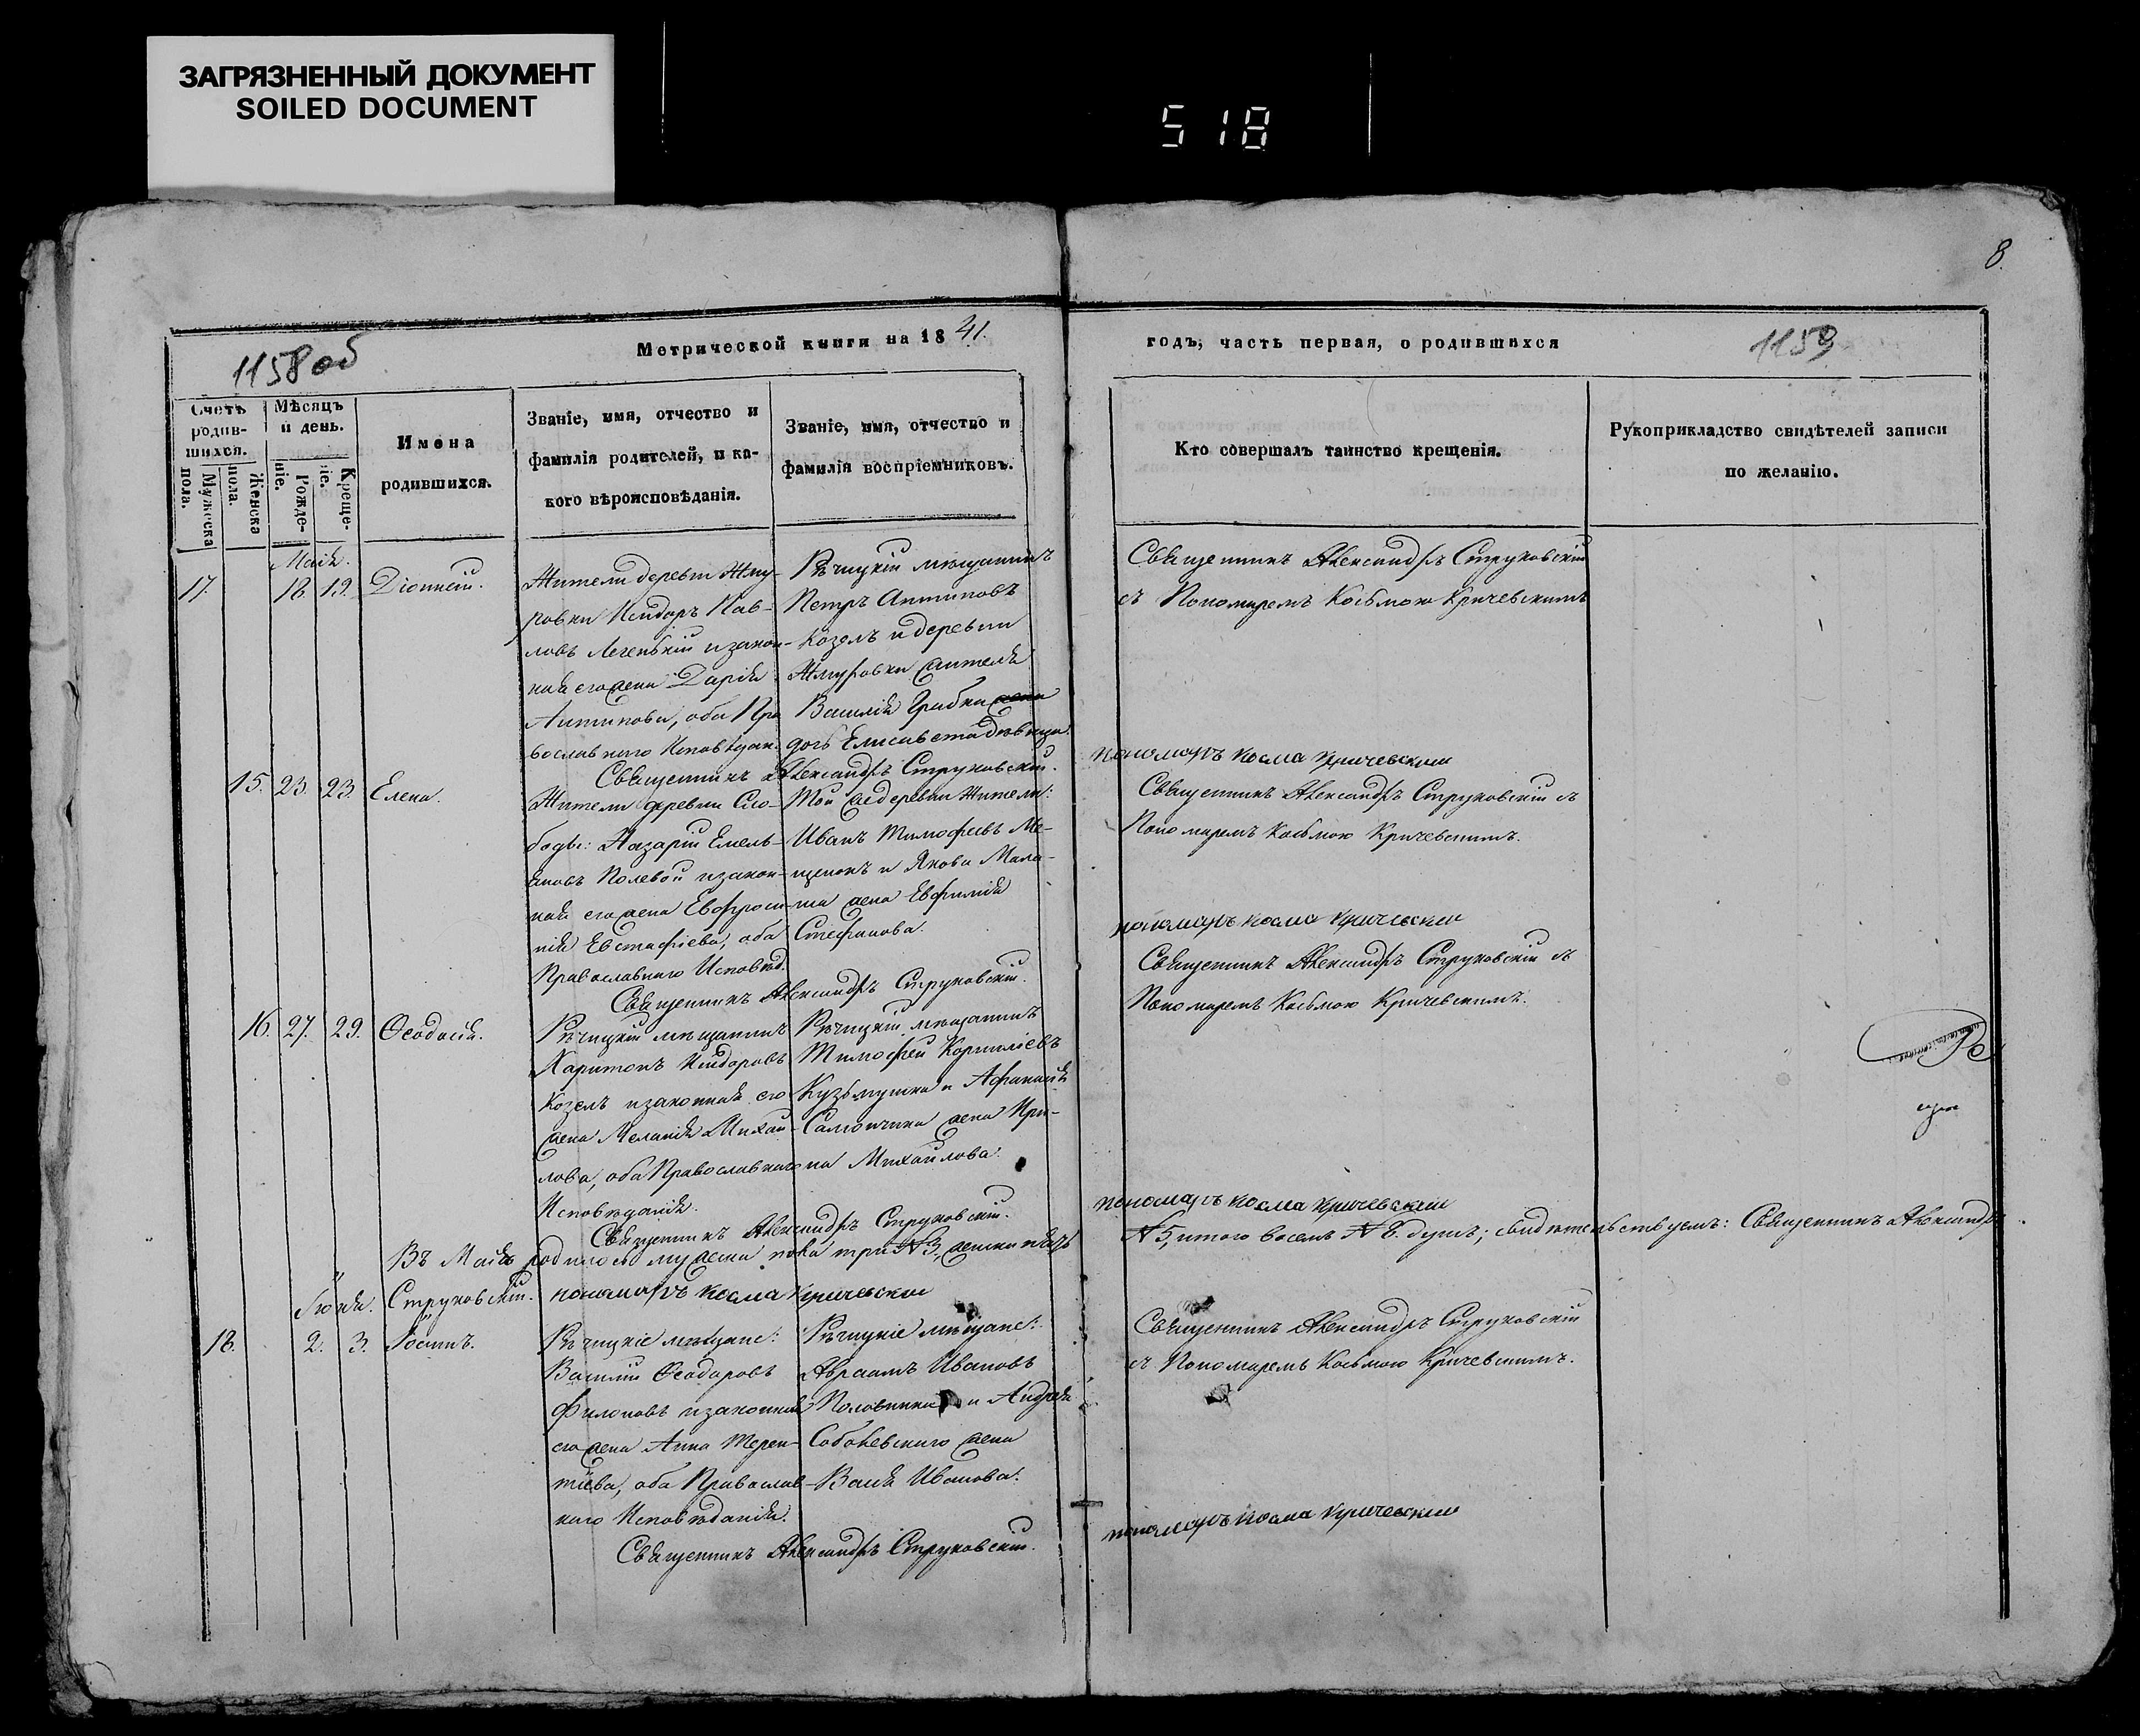 ЗАГРЯЗНЕННЫЙ ДОКУМЕНТ
SOILED DOCUMENT
518
8.
Метрической книги на 1841.
годъ, часть первая, о родившихся
1158об
1159
Счетъ родившихся.
Мужеска пола.
Женска пола.
Мѣсяцъ и день.
Рожденіе.
Крещеніе.
Имена
родившихся.
Званіе, имя, отчество и
фамилія родителей, и ка-
кого вѣроисповѣданія.
Званіе, имя, отчество и
фамилія воспріемниковъ.
Кто совершалъ таинство крещенія.
Рукоприкладство свидѣтелей записи
по желанію.
Маія.
17.
18.
19.
Діонисій.
Жители деревни Жму-
ровки Исидоръ Пав-
ловъ и закон-
ная его жена Дарія
Антипова, оба Пра
вославнаго Исповѣдан.
Рѣчицкій мѣщанинъ
Петръ Антиповъ
Козелъ и деревни
Жмуровки жителя
Василія Грибка
дочь Елисавета дѣвица.
Священникъ Александръ Струковскій
съ Пономаремъ Косьмою Кричевскимъ
Священникъ Александръ Струковскій.
пономаръ косма кричевскии
15.
23.
23.
Елена.
Жители деревни Сло-
боды: Назарій Емель-
яновъ Полевой и закон-
ная его жена Евфроси-
нія Евстафіева, оба
Православнаго Исповѣд.
Той же деревни Жители:
Иванъ Тимофеевъ Ме-
щенокъ и Якова Мала-
жена Евфимія
Стефанова.
Священникъ Александръ Струковскій съ
Пономаремъ Косьмою Кричевскимъ.
пономаръ косма кричевскии
Священникъ Александръ Струковскій.
16.
27.
29.
Ѳеодосія.
Рѣчицкій мѣщанинъ
Харитонъ Исидоровъ
Козелъ и законная его
жена Меланія Михаи-
лова, оба Православнаго
Исповѣданія.
Рѣчицкій мѣщанинъ
Тимофей Корниліевъ
Кузьмушка и Афанасія
жена Ири-
на Михайлова.
Священникъ Александръ Струковскій съ
Пономаремъ Косьмою Кричевскимъ.
пономаръ косма кричевскии
Священникъ Александръ Струковскій.
Въ Маіѣ родилось мужеска пола три №3, женска пять
№5, итого восемь №8. душъ; свидѣтельствуемъ: Священникъ Александръ
Струковскій. пономаръ косма кричевскии
Іюня.
18.
2.
3.
Іустинъ.
Рѣчицкіе мѣщане:
Василій Ѳеодоровъ
Филоновъ и законная
его жена Анна Терен-
тіева, оба Православ-
наго Исповѣданія.
Рѣчицкіе мѣщане:
Авраамъ Ивановъ
Половинка и Андрея
Соболевскаго жена
Васса Иванова.
Священникъ Александръ Струковскій
съ Пономаремъ Косьмою Кричевскимъ.
Священникъ Александръ Струковскій.
пономаръ косма кричевскии